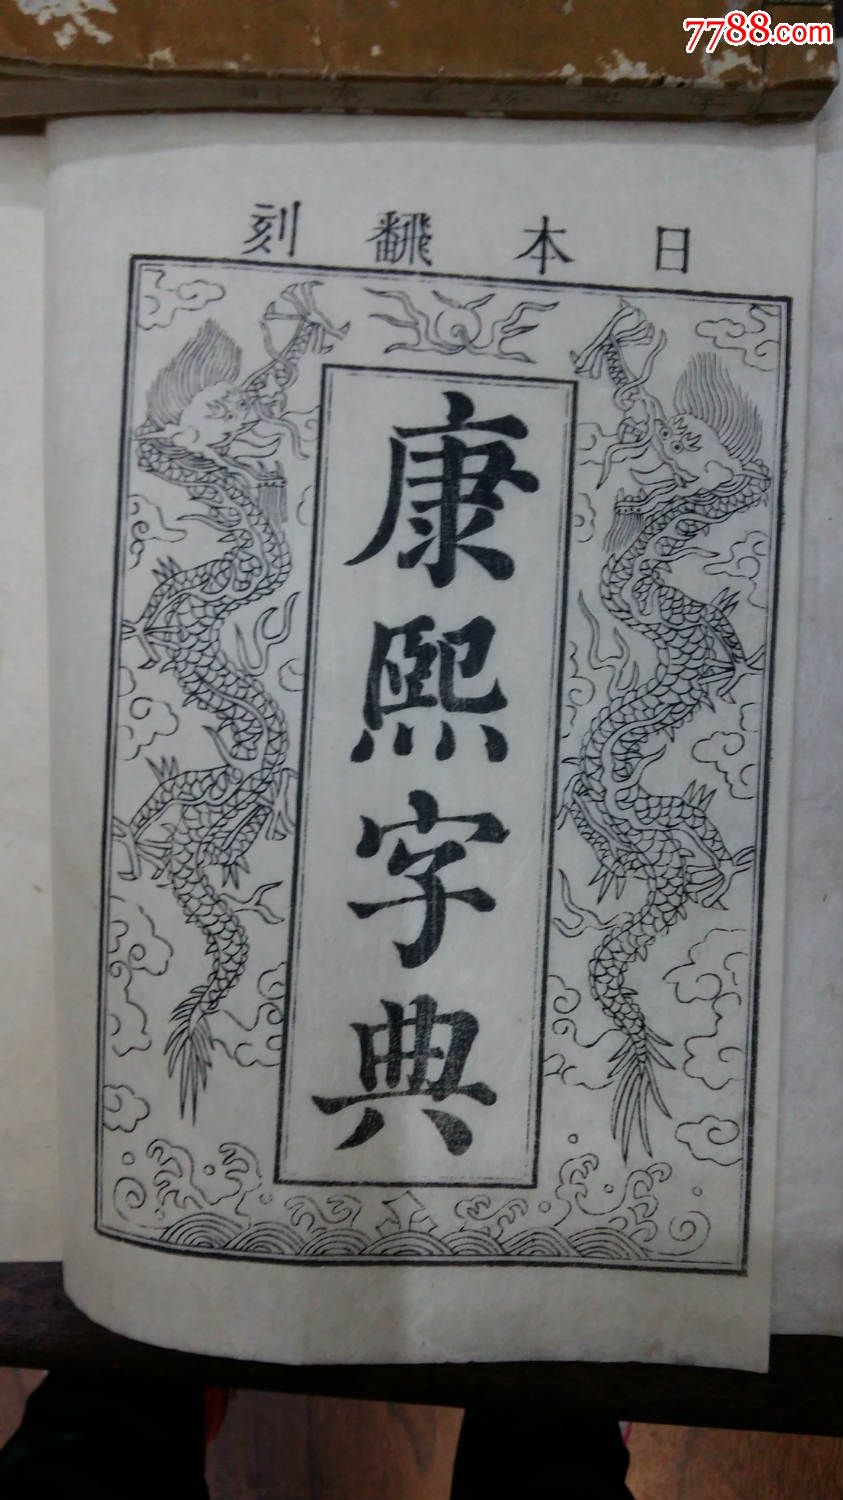 7788.com
日本翻刻
康熙字典